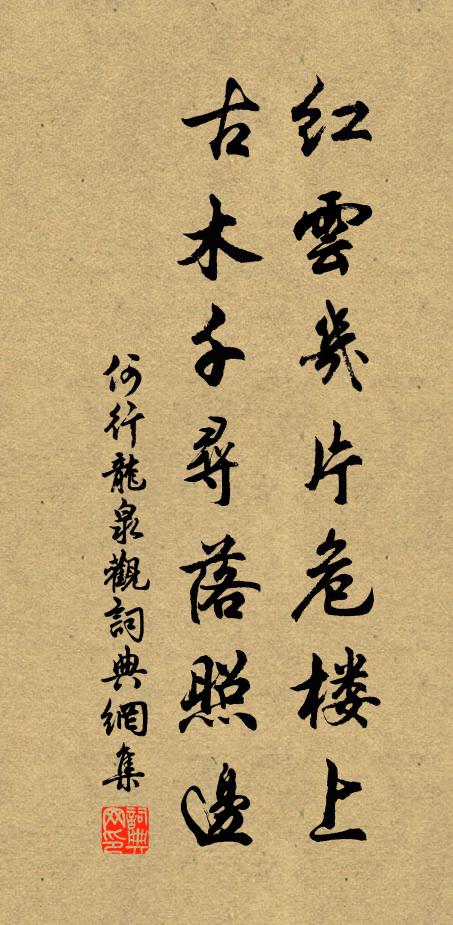 紅雲幾片危楼上
古木千尋落照邊
何行龍泉觀詞典網集
詞典网印